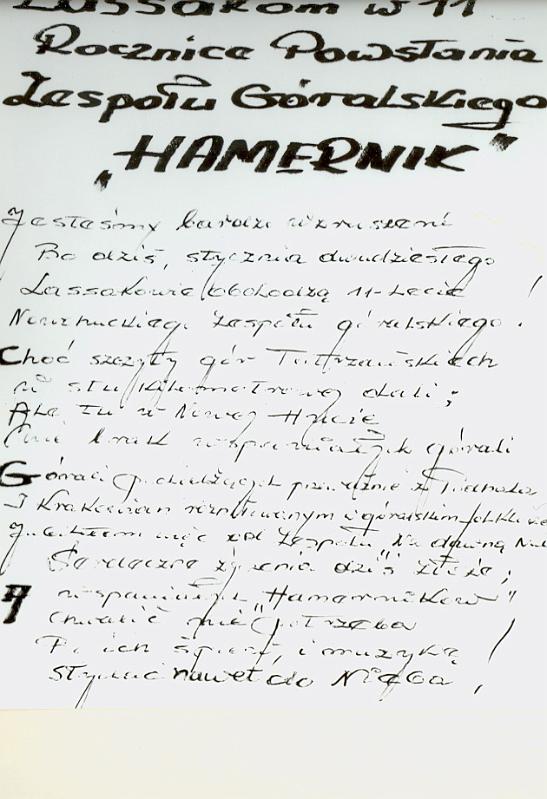 Lassakom w 11
Rocznicę Powstania
Zespołu Góralskiego
„HAMERNIK"
Jesteśmy bardzo wzruszeni
Bo dziś, stycznia dwudziestego
Lassakowie obchodzą 11-lecie !
Nowohuckiego Zespołu góralskiego.
Choć szczyty gór Tatrzańskich
w stu kilometrowej dali;
Ale tu w Nowej Hucie
brak wspaniałych górali
Górali pochodzących przeważnie z Podhala
I Krakowian góralskim
więc zad Zespołu,
Serdeczne życzenia dziś złożę;
A wspaniałych „Hamerników"
chwalić nie potrzeba
Bo ich śpiew, i muzykę !
Słychać nawet do Nieba,